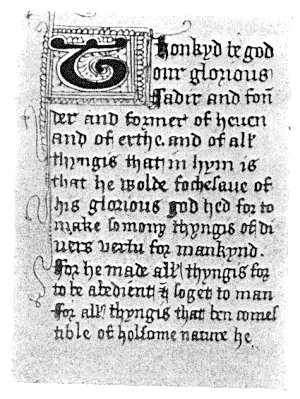 Thonkyd be god
our glorious
fadir and foū
der and former of heuen
and of erthe. and of all
thyngis that in hym is
that he wolde fochesaue of
his glorious god hed for to
make so mony thyngis of di
uers vertu for mankynd.
ffor he made all thyngis for
to be abedient & soget to man
ffor all thyngis that ben comes
tible of holsome nature he